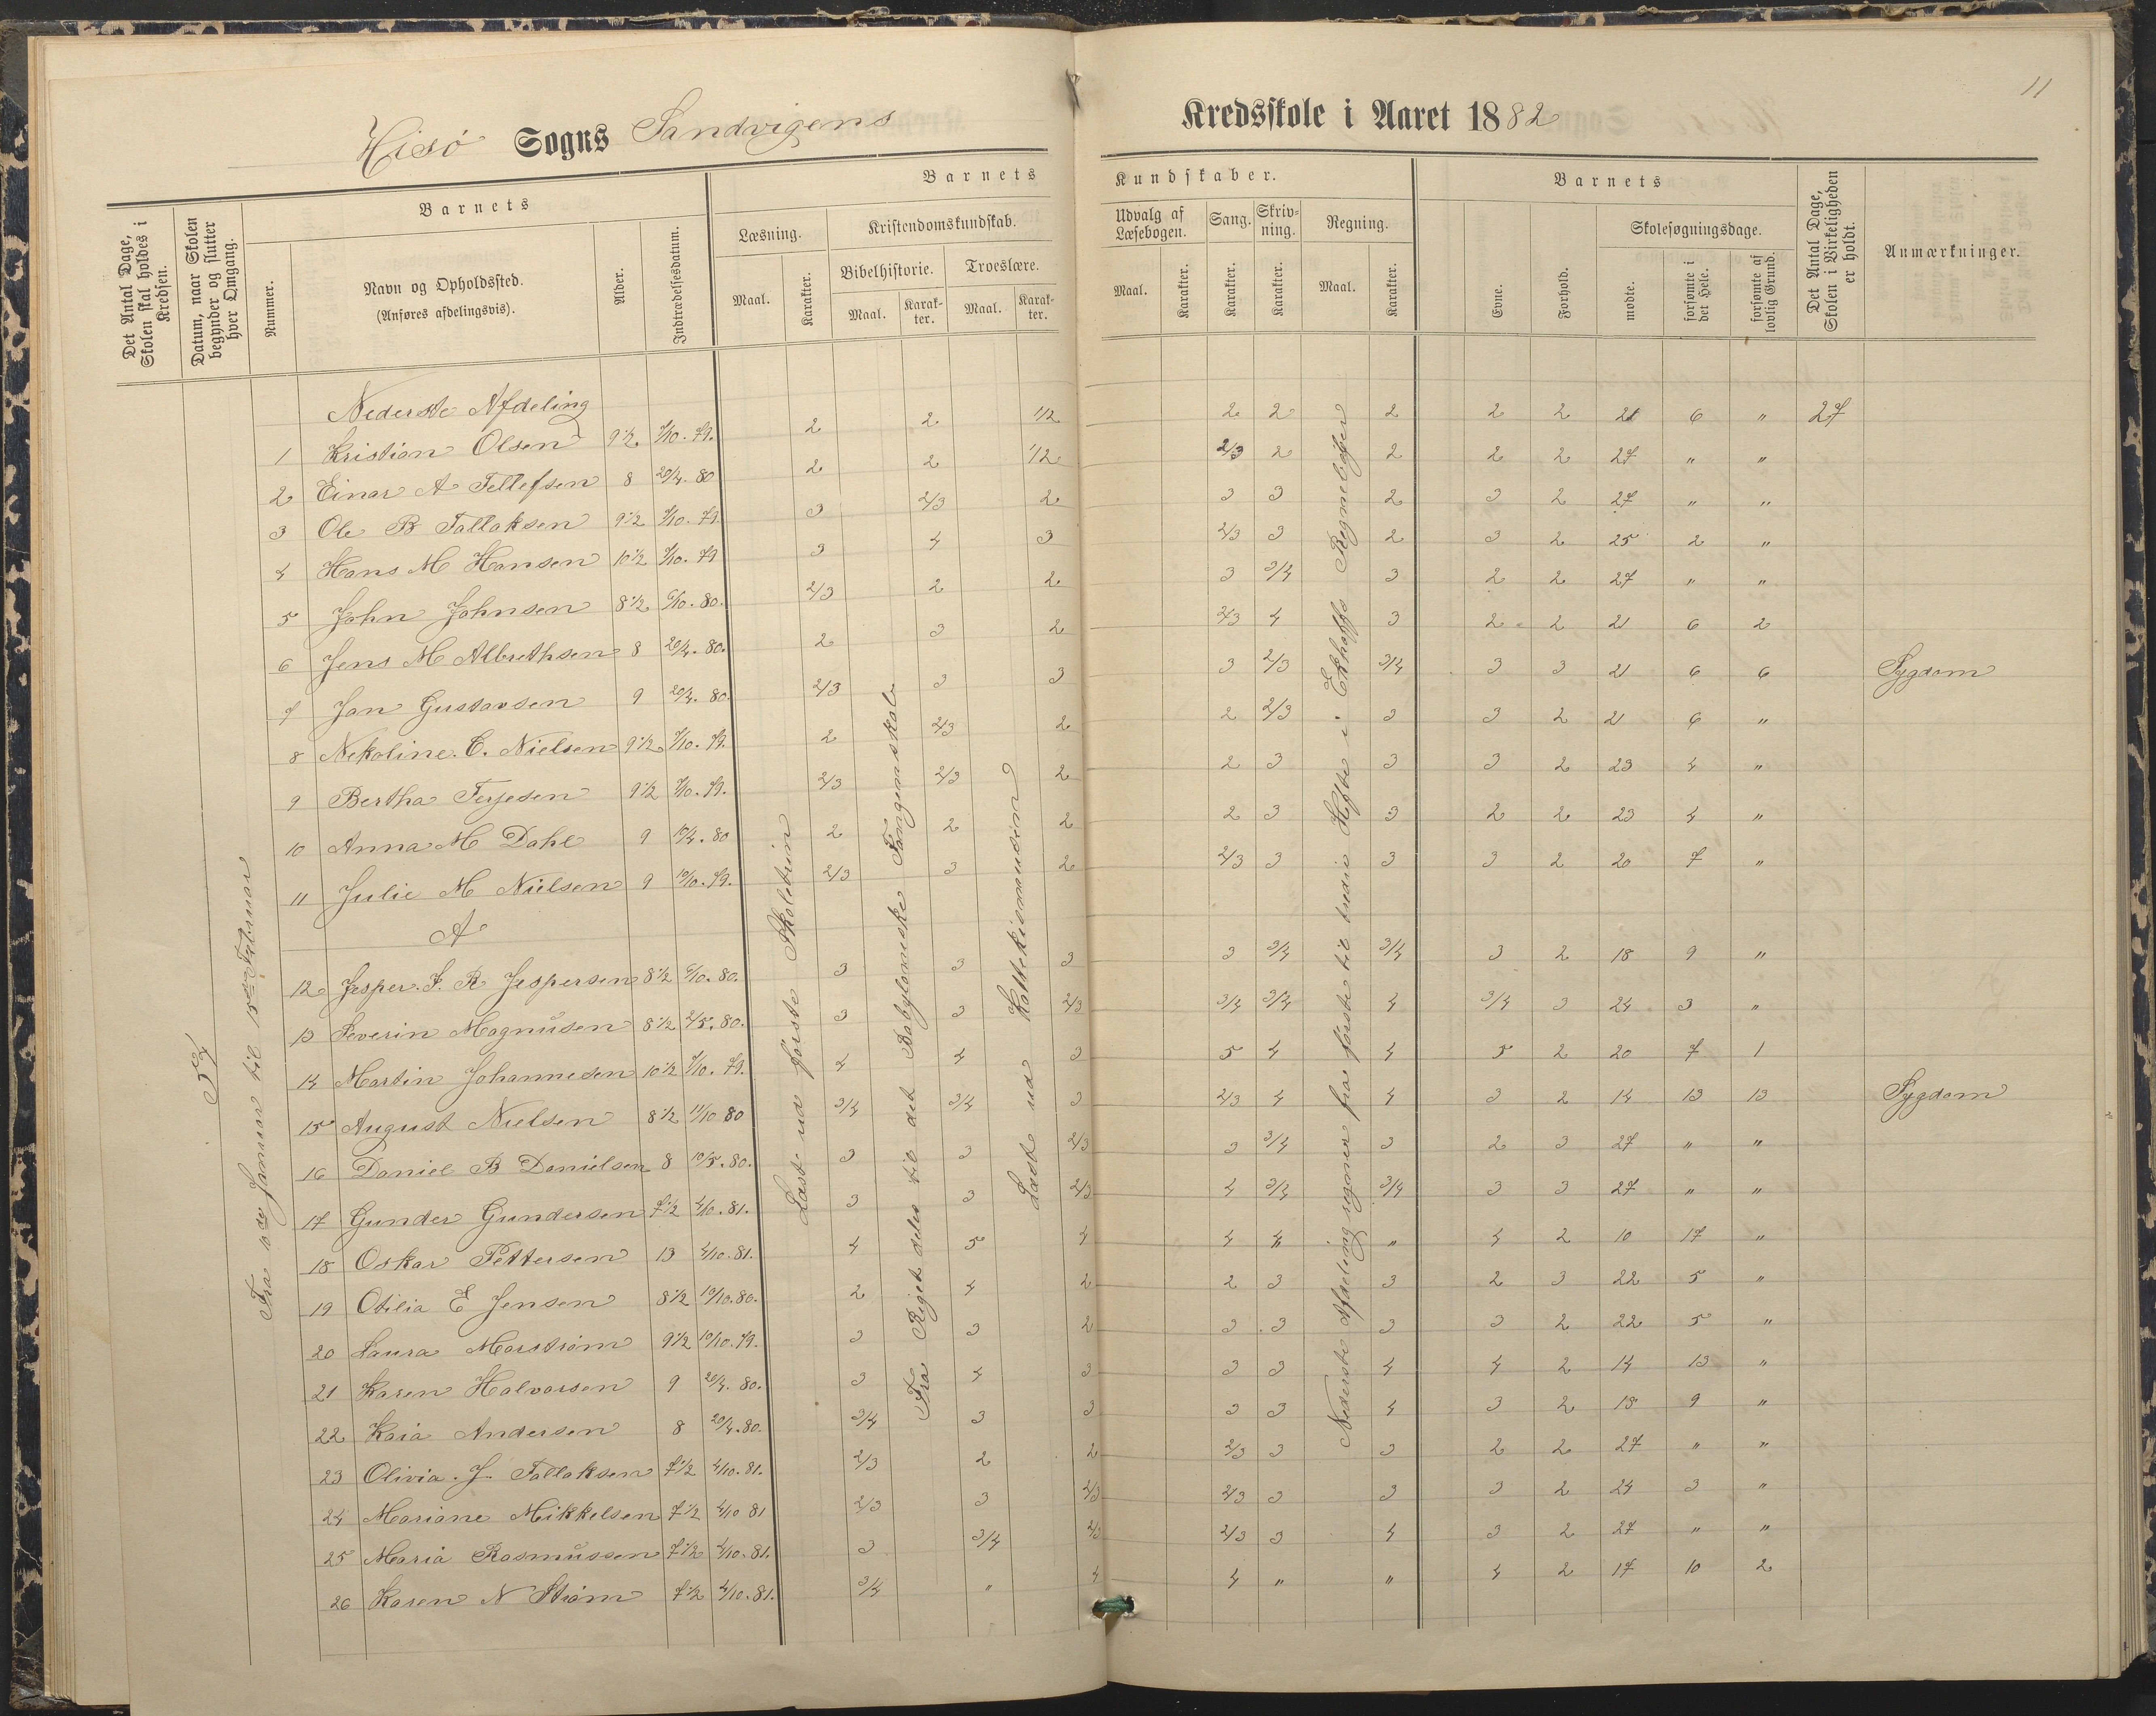 11
Hisø Sogns Sandvigens Kredsskole i Aaret 1882
Det Antal Dage, Skolen skal holdes i Kredsen.
Datum, naar Skolen begynder og slutter hver Omgang.
Barnets
Nummer.
Navn og Opholdssted.
(Anføres afdelingsvis).
Alder.
Indtrædelsesdatum.
Barnets Kundskaber.
Læsning.
Maal. Karakter.
Kristendomskundskab.
Bibelhistorie. Troeslære.
Maal. Karakter. Maal. Karakter.
Udvalg af Læsebogen. Sang. Skrivning. Regning.
Maal. Karakter. Karakter. Karakter. Maal. Karakter.
Barnets
Evne. Forhold.
Skolesøgningsdage.
mødte. forsømte i det Hele. forsømte af lovlig Grund.
Det Antal Dage, Skolen i Virkeligheden er holdt.
Anmærkninger.
54
Fra 10de Januar til 15de Februar
Læst ud første Skoletrin
Fra Riget deles til det Babyloniske Fangenskab
Læst ud Katekismusen
Nederste Afdeling regner fra første til tredie Hefte i Ekhoffs Regnebøger
Nederste Afdeling
1 Kristian Olsen 9 1/2 7/10. 79. 2 2 1/2 2 2 2 2 2 21 6 " 27
2 Einar A Tellefsen 8 20/4. 80 2 2 1/2 2/3 2 2 2 2 27 " "
3 Ole B Tallaksen 9 1/2 7/10. 79. 3 2/3 2 3 3 2 3 2 27 " "
4 Hans M Hansen 10 1/2 7/10. 79 3 4 3 2/3 3 2 3 2 25 2 "
5 John Johnsen 8 1/2 6/10. 80. 2/3 2 2 3 3/4 3 2 2 27 " "
6 Jens M Albrethsen 8 20/4. 80. 2 3 2 2/3 4 3 2 2 21 6 2
7 Jan Gustavsen 9 20/4. 80. 2/3 3 3 3 2/3 3/4 3 3 21 6 6 Sygdom
8 Nekoline. C. Nielsen 9 1/2 7/10. 79. 2 2/3 2 2 2/3 3 3 2 21 6 "
9 Bertha Terjesen 9 1/2 7/10. 79. 2/3 2/3 2 2 3 3 3 2 23 4 "
10 Anna M Dahl 9 10/4. 80 2 2 2 2 3 3 2 2 23 4 "
11 Julie M Nielsen 9 10/10. 79. 2/3 3 2 2/3 3 3 3 2 20 7 "
A
12 Jesper. J. R Jespersen 8 1/2 6/10. 80. 3 3 3 3 3/4 3/4 3 2 18 9 "
13 Severin Magnusen 8 1/2 2/5. 80. 3 3 2/3 3/4 3/4 4 3/4 3 24 3 "
14 Martin Johannesen 10 1/2 7/10. 79. 4 4 3 5 4 4 5 2 20 7 1
15 August Nielsen 8 1/2 11/10 80 3/4 3/4 3 2/3 4 4 3 2 14 13 13 Sygdom
16 Daniel B Danielsen 8 10/5. 80. 3 3 2/3 3 3/4 3 2 3 27 " "
17 Gunder Gundersen 7 1/2 4/10. 81. 3 3 2/3 4 3/4 3/4 3 3 27 " "
18 Oskar Pettersen 13 4/10. 81. 4 5 4 4 4 " 4 2 10 17 "
19 Otilia E Jensen 8 1/2 10/10. 80. 2 4 2 2 3 3 2 3 22 5 "
20 Laura Marstrøm 9 1/2 10/10. 79. 3 3 2 3 3 3 3 2 22 5 "
21 Karen Halvorsen 9 20/4. 80. 3 4 3 3 3 4 4 2 14 13 "
22 Kaia Andersen 8 20/4. 80. 3/4 3 3 3 3 4 3 2 18 9 "
23 Olivia. J. Tallaksen 7 1/2 4/10. 81. 2/3 2 2 2/3 3 3 2 2 27 " "
24 Mariane Mikkelsen 7 1/2 4/10 81 2/3 3 2/3 2/3 3 3 3 2 24 3 "
25 Maria Rasmussen 7 1/2 4/10. 81. 3 3/4 2/3 2/3 3 4 3 2 27 " "
26 Karen N Strøm 7 1/2 4/10. 81. 3/4 " 4 4 " " 4 2 17 10 2